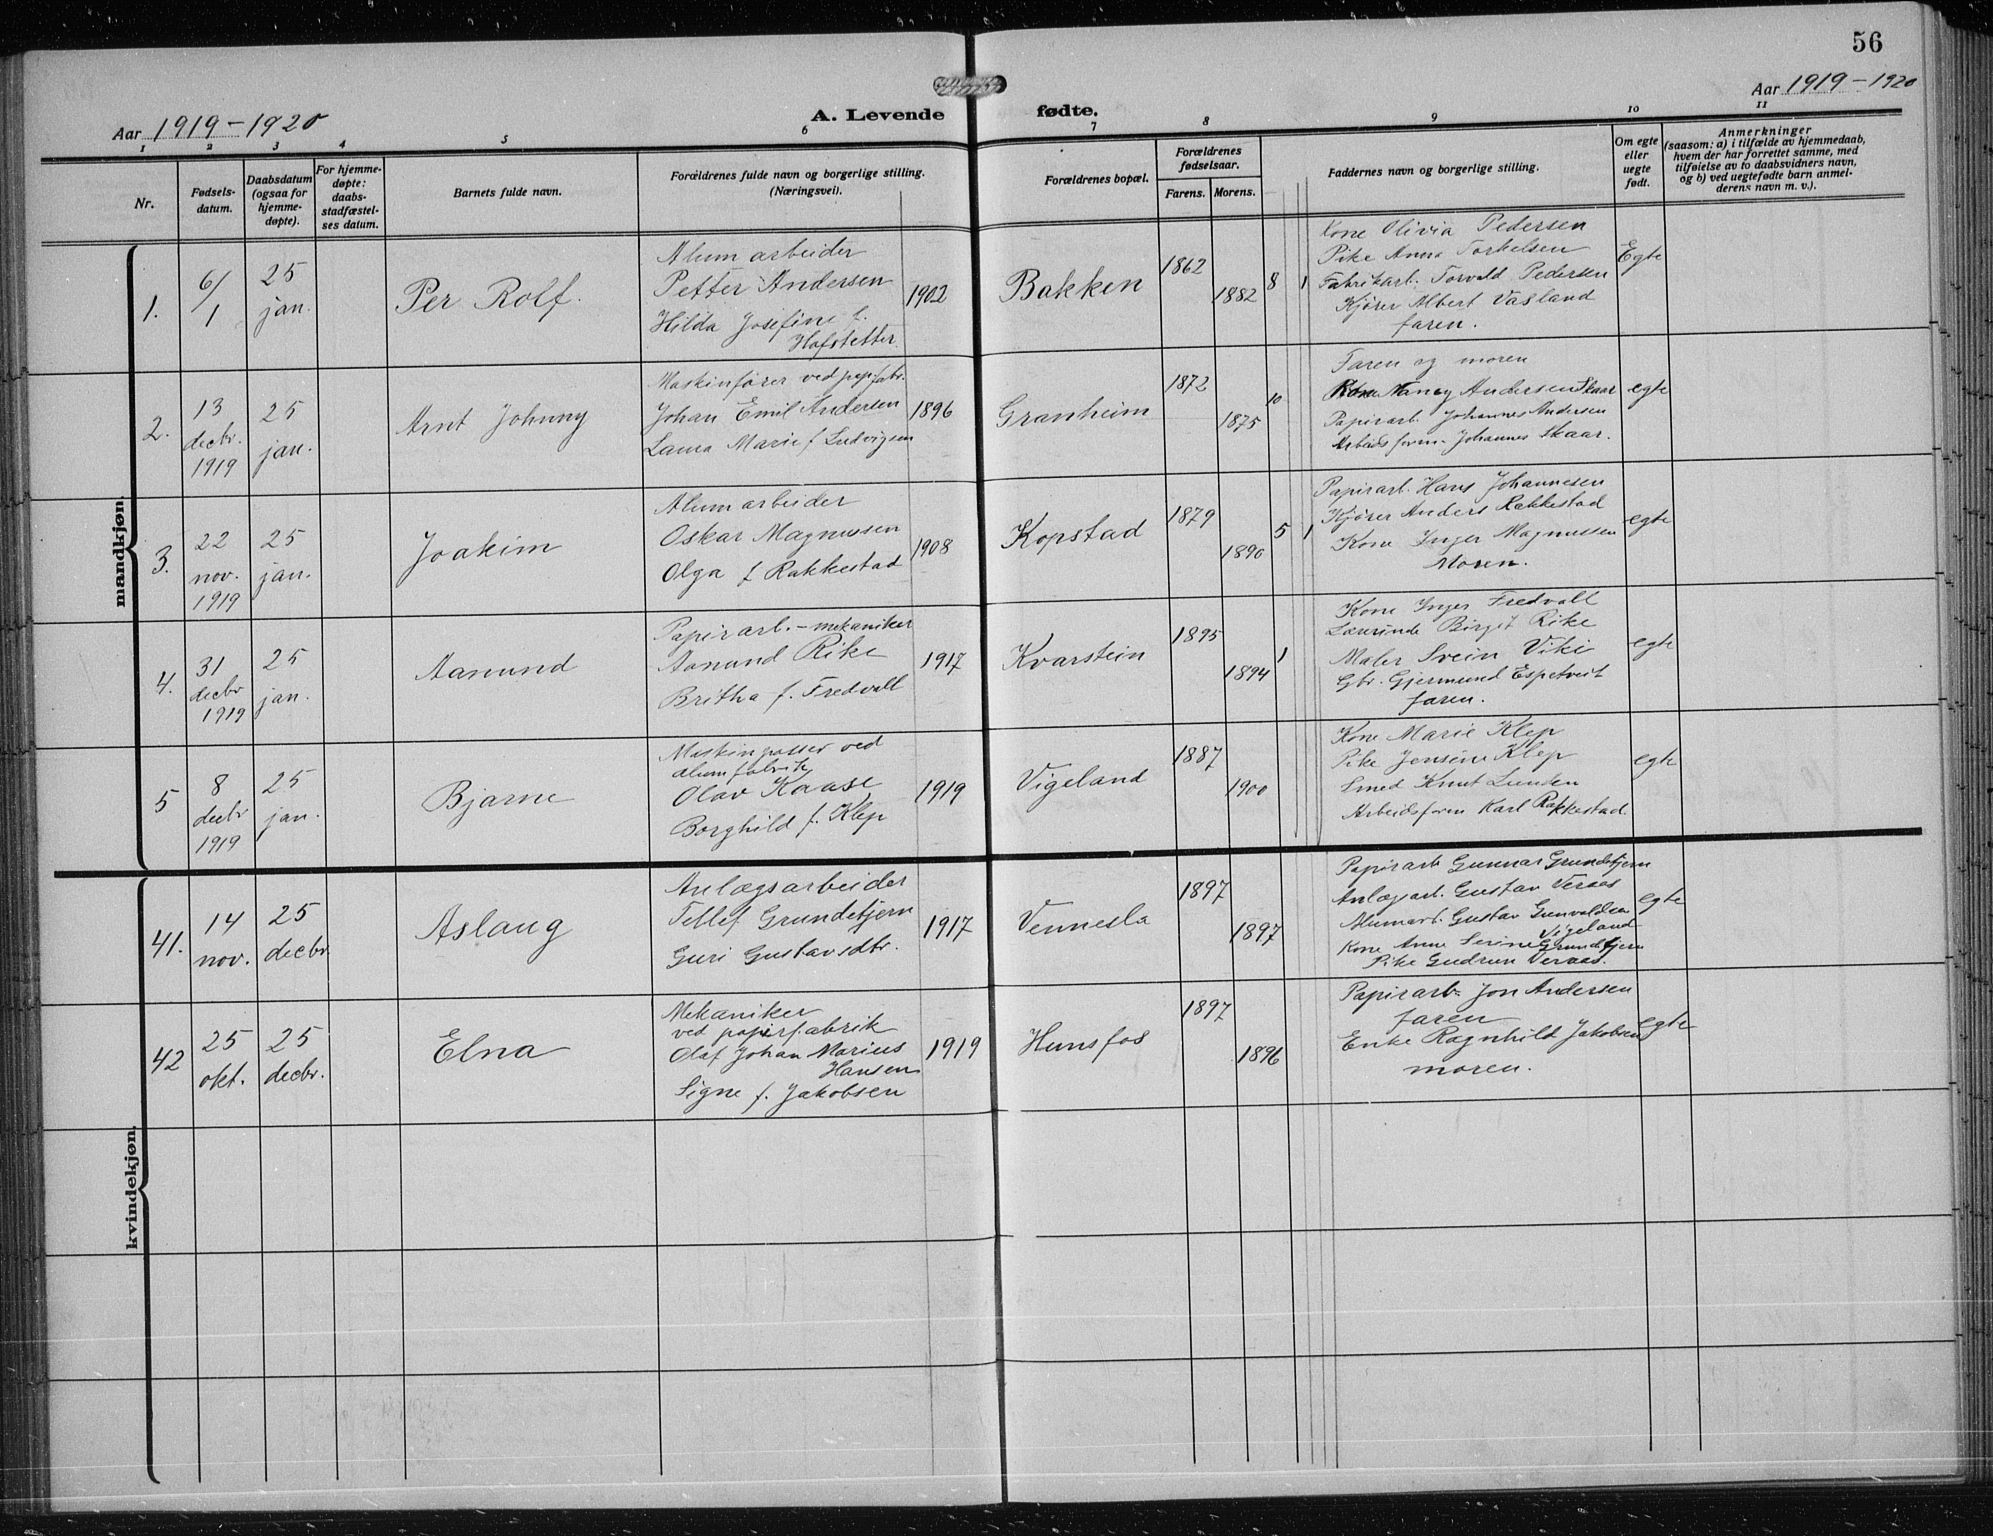 56
Aar 1919-1920
A. Levende fødte.
Aar 1919-1920
1 2 3 4 5 6 7 8 9 10 11
Nr.
Fødsels-
datum.
Daabsdatum
(ogsaa for
hjemme-
døpte).
For hjemme-
døpte:
daabs-
stadfæstel-
ses datum.
Barnets fulde navn.
Forældrenes fulde navn og borgerlige stilling.
(Næringsvei).
Forældrenes bopæl.
Forældrenes
fødselsaar.
Farens. Morens.
Faddernes navn og borgerlige stilling.
Om egte
eller
uegte
født.
Anmerkninger
(saasom: a) i tilfælde av hjemmedaab,
hvem der har forrettet samme, med
tilføielse av to daabsvidners navn,
og b) ved uegtefødte barn anmel-
derens navn m. v.).
mandkjøn.
1.
6/1
25
jan.
Per Rolf.
Alum arbeider
Petter Andersen
Hilda Josefine f.
Hofstetter.
1902
Bakken
1862
1882
8 1
Kone Olivia Pedersen
Pike Anna Torkelsen
Fabrikarb. Torvald Pedersen
Kjører Albert Vasland
faren.
Egte
2.
13
decbr.
1919
25
jan.
Arnt Johnny
Maskinfører ved pap.fabr.
Johan Emil Andersen
Laura Marie f Ludvigsen
1896
Granheim
1872
1875
10
Faren og moren
Kone Nancy Andersen Skaar
Papirarb. Johannes Andersen
Arbeidsform. Johannes Skaar.
egte
3.
22
nov.
1919
25
jan.
Joakim
Alum arbeider
Oskar Magnussen
Olga f Rakkestad
1908
Kopstad
1879
1890
5 1
Papirarb. Hans Johannesen
Kjører Anders Rakkestad
Kone Inger Magnussen
Moren.
egte
4.
31
decbr
1919
25
jan.
Aanund
Papirarb. - mekaniker
Aanund Rike
Britha f. Fredvall
1917
Kvarstein
1895
1894
1
Kone Inger Fredvall
Lærerinde Birgit Rike
Maler Svein Viki
Gbr. Gjermund Espetveit
faren.
egte
5
8
decbr
1919
25
jan.
Bjarne
Maskinpasser ved
alumfabrik
Olav Kaase
Borghild f. Klep
1919
Vigeland
1887
1900
Kone Marie Klep
Pike Jensine Klep
Smed Knut Lunden
Arbeidsform Karl Rakkestad.
egte
kvindekjøn.
41.
14
nov.
25
decbr
Aslaug
Anlægsarbeider
Tellef Grundetjern
Guri Gustavsdtr.
1917
Vennesla
1897
1897
Papirarb Gunnar Grundetjern
Anlægsarb. Gustav Veraas
Alumarb. Gustav Gunvaldsen
Vigeland
Kone Anne Serine Grundetjern
Pike Gudrun Veraas.
egte
42
25
okt.
25
decbr.
Elna
Mekaniker
ved papirfabrik
Olaf Johan Marius
Hansen
Signe f. Jakobsen
1919
Hunsfos
1897
1896
Papirarb. Jon Andersen
faren
Enke Ragnhild Jakobsen
moren.
egte